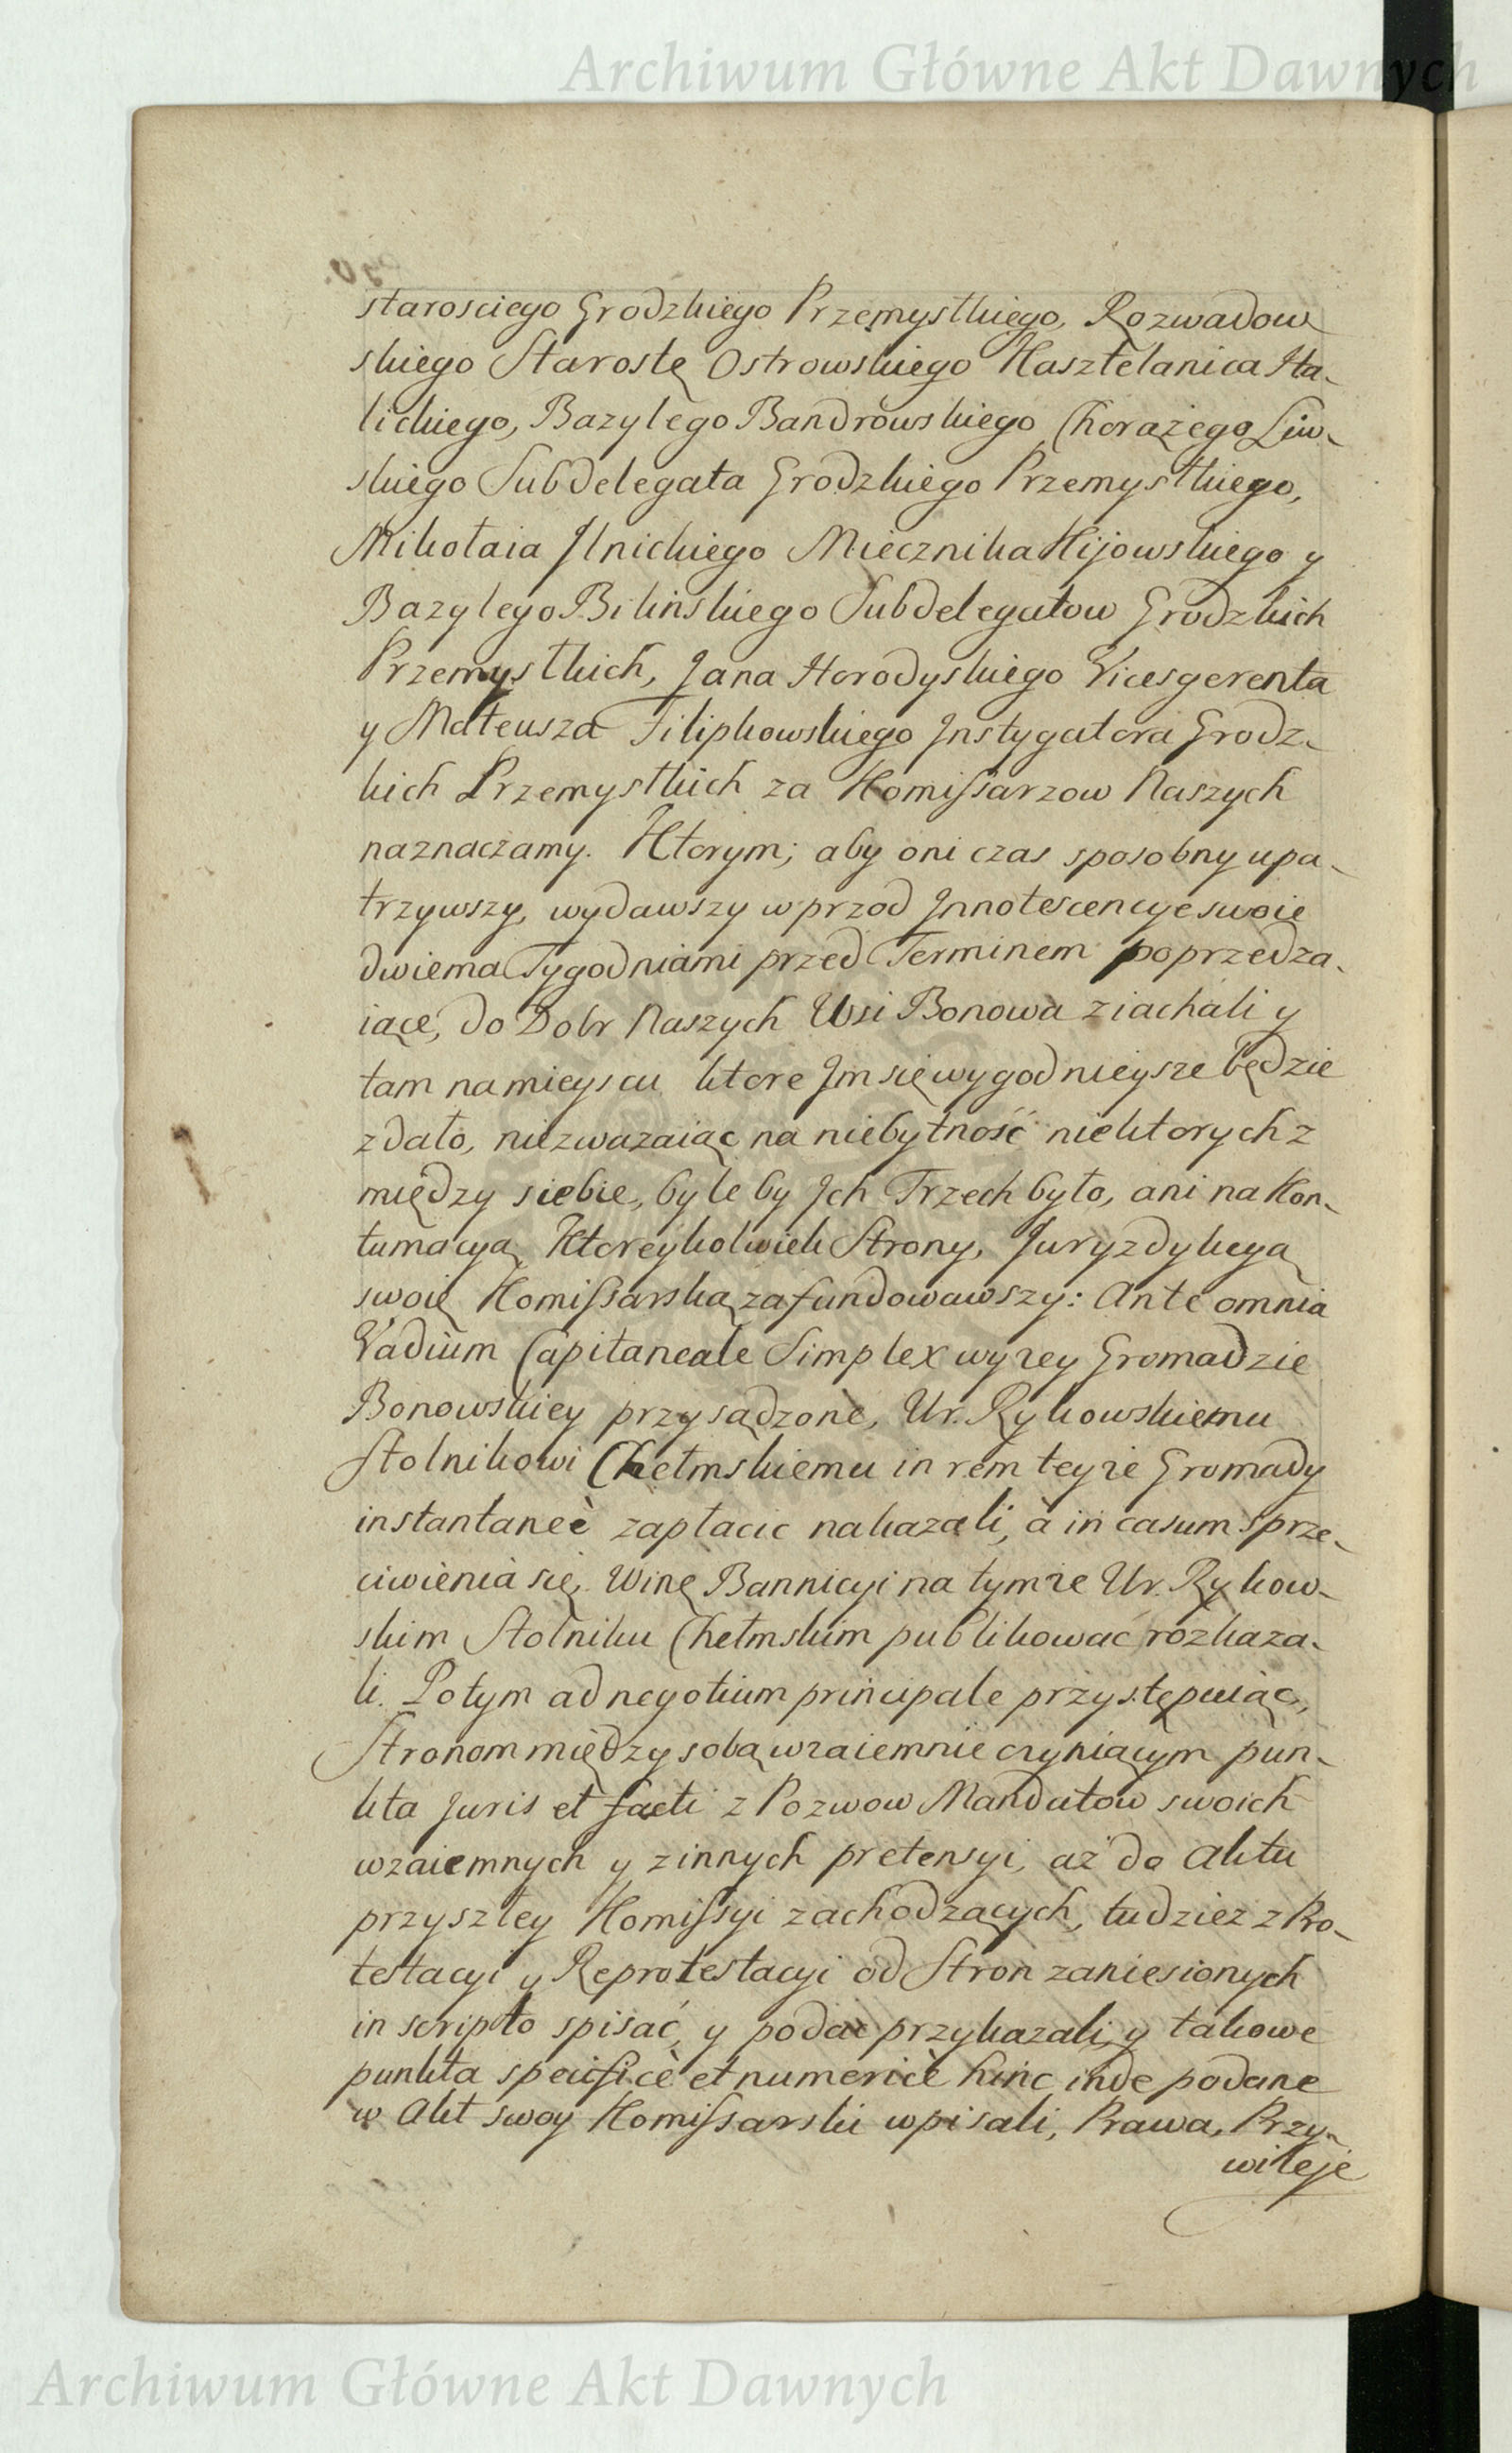 Archiwum Główne Akt Dawnych
starosciego Grodzkiego Przemyskiego, Rozwadow
skiego Starostę Ostrowskiego Kasztelanica Ha-
lickiego, Bazylego Bandrowskiego Chorążego Liw-
skiego Subdelegata Grodzkiego Przemyskiego,
Mikołaia Ilnickiego Miecznika Kijowskiego y
Bazylego Bilinskiego Subdelegatow Grodzkich
Przemyslkich, Jana Horodyskiego Vicesgerenta
y Mateusza Filipkowskiego Instygatora Grodz-
kich Przemyslkich za Komissarzow Naszych
naznaczamy. Ktorym; aby oni czas sposobny upa-
trzywszy, wydawszy w przod Innotescencye swoie
dwiema Tygodniami przed Terminem poprzedza-
iącę, do Dobr Naszych Wsi Bonowa ziachali y
tam na mieyscu ktore Jm się wygodnieysze będzie
zdało, niezwazaiąc na niebytność niektorych z
między siebie, byle by Jch Trzech było, ani na Kon-
tumacyą Ktoreykolwiek Strony, Juryzdykcyą
swoię Komissarską zafundowawszy: Ante omnia
Vadium Capitaneale Simplex wyzey Gromadzie
Bonowskiey przysądzone, Ur. Rykowskiemu
Stolnikowi Chełmskiemu in rem teyze Gromady
instantaneè zapłacic nakazali, à in casum sprze-
ciwienia się, Winę Bannicyi na tymze Ur. Rykow-
skim Stolniku Chełmskim publikować rozkaza-
li. Potym ad negotium principale przystępuiąc,
Stronom między sobą wzaiemnie czyniącym pun-
kta Juris et facti z Pozwow Mandatow swoich
wzaiemnych y z innych pretensyi, aż do Aktu
przyszłey Komissyi zachodzących, tudziez z Pro-
testacyi y Reprotestacyi od Stron zaniesionych
in scripto spisać, y podać przykazali, y takowe
punkta specificè et numericè hinc inde podane
w Akt swoy Komissarski wpisali, Prawa, Przy-
wileje
Archiwum Główne Akt Dawnych